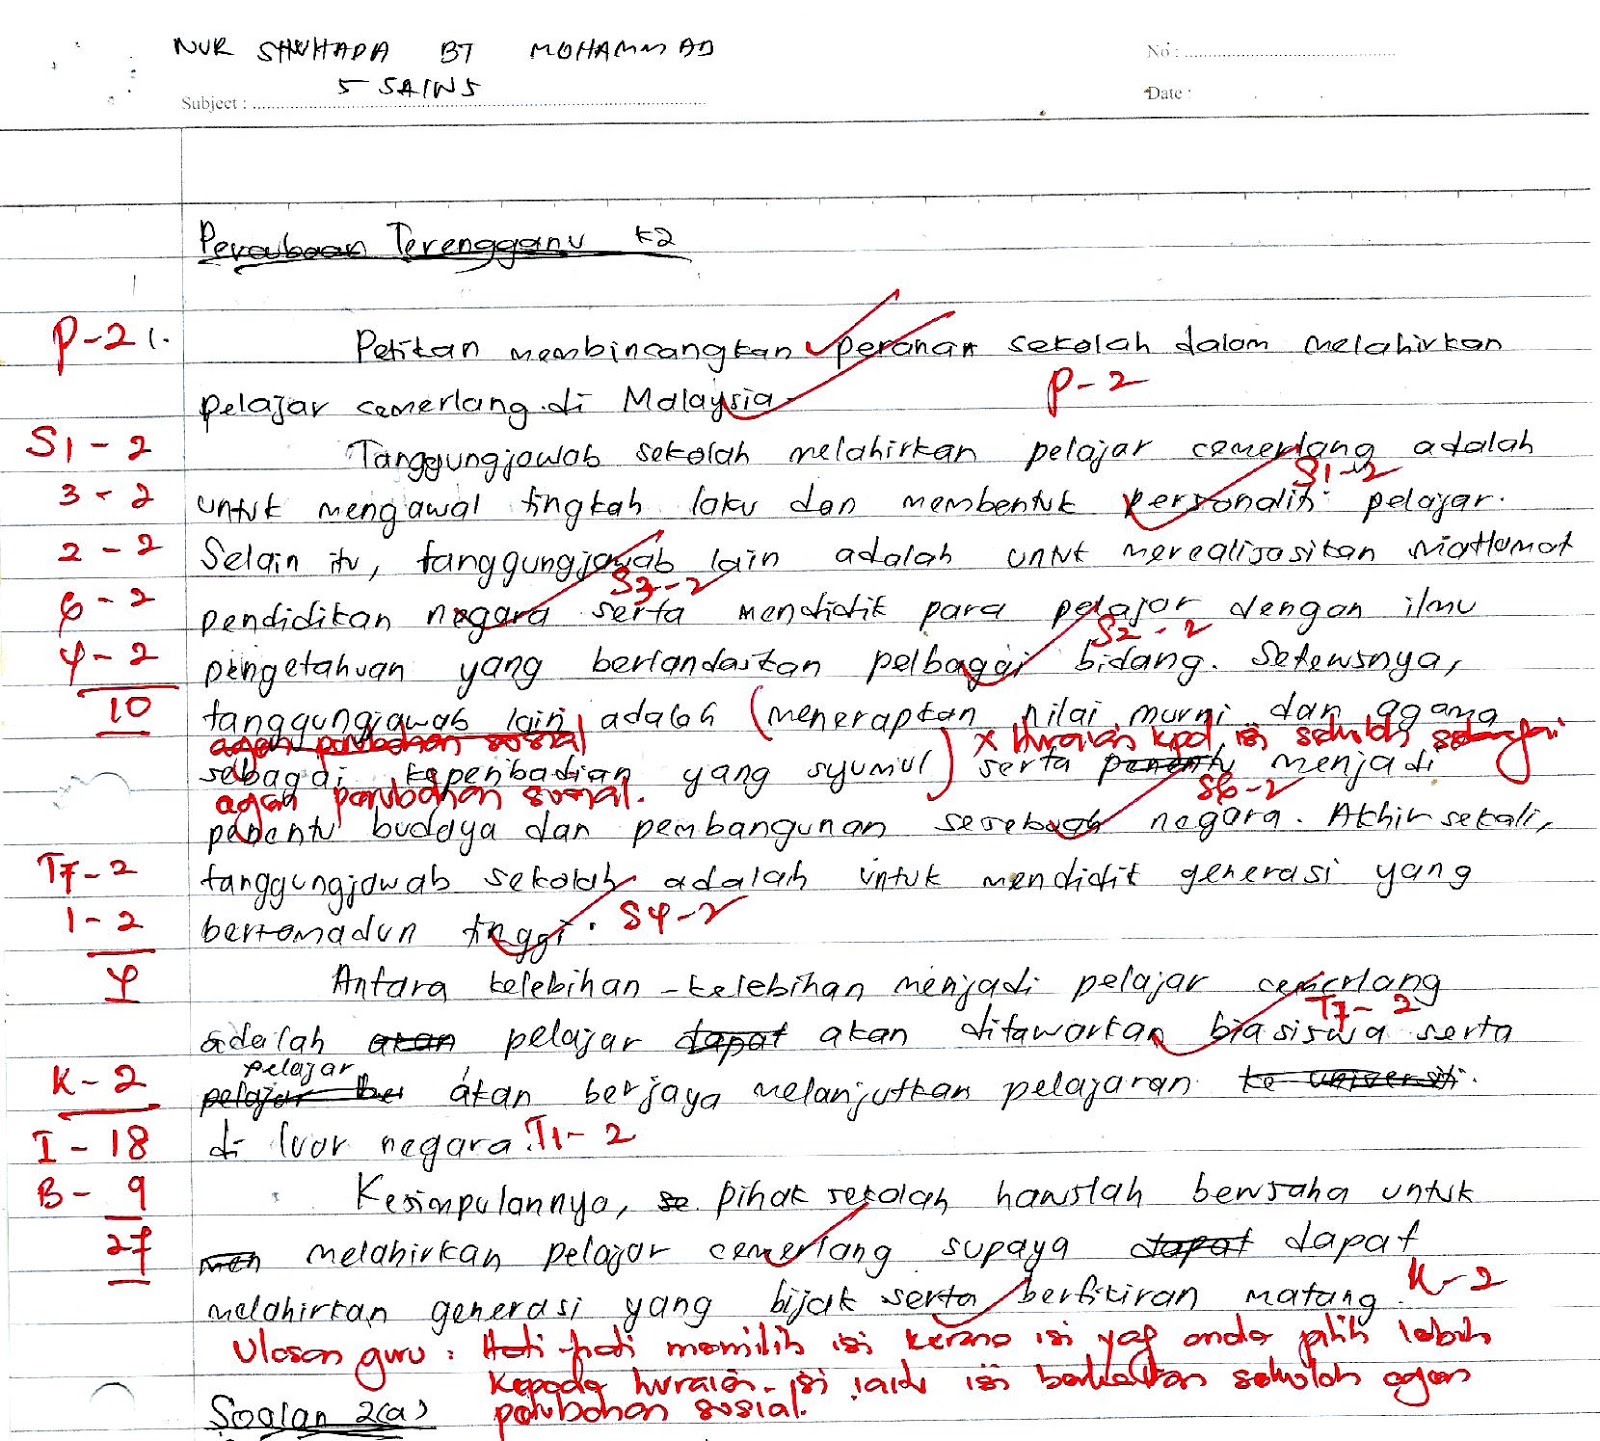 NUR SHUHADA BT MOHAMMAD
No :
5 SAINS
Subject :
Date :
Percubaan Terengganu K2
P-2 1. Petikan membincangkan peranan sekolah dalam melahirkan
pelajar cemerlang di Malaysia. P-2
S1-2 Tanggungjawab sekolah melahirkan pelajar cemerlang adalah
S1-2
3-2 untuk mengawal tingkah laku dan membentuk personaliti pelajar.
2-2 Selain itu, tanggungjawab lain adalah untuk merealisasikan matlamat
S3-2
6-2 pendidikan negara serta mendidik para pelajar dengan ilmu
S2-2
4-2 pengetahuan yang berlandaskan pelbagai bidang. Seterusnya,
10 tanggungjawab lain adalah (menerapkan nilai murni dan agama
agen perubahan sosial x huraian kpd isi sekolah sebagai
sebagai keperibadian yang syumul) serta penentu menjadi
agen perubahan sosial. S6-2
penentu budaya dan pembangunan sesebuah negara. Akhir sekali,
T7-2 tanggungjawab sekolah adalah untuk mendidik generasi yang
1-2 bertamadun tinggi. S4-2
4 Antara kelebihan-kelebihan menjadi pelajar cemerlang
T7-2
adalah akan pelajar dapat akan ditawarkan biasiswa serta
pelajar
K-2 pelajar ber akan berjaya melanjutkan pelajaran ke universiti.
I-18 di luar negara. T1-2
B-9 Kesimpulannya, se pihak sekolah haruslah berusaha untuk
27 men melahirkan pelajar cemerlang supaya dapat dapat
melahirkan generasi yang bijak serta berfikiran matang. K-2
Ulasan guru : Hati-hati memilih isi kerana isi yag anda pilih lebih
kepada huraian isi iaitu isi berkaitan sekolah agen
perubahan sosial.
Soalan 2(a)